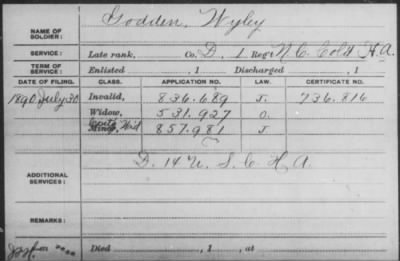 Godden, Wyley
NAME OF SOLDIER:
SERVICE: Late rank, Co. D, 1 Reg't N.C. Cold H.A.
TERM OF SERVICE: Enlisted , 1 Discharged , 1
DATE OF FILING. CLASS. APPLICATION NO. LAW. CERTIFICATE NO.
1890 July 30 Invalid, 836.689 J. 736.816
Widow, 531.927 O.
Minor, Wid 857.981 J
D. 14 U.S.C.H.A.
ADDITIONAL SERVICES:
REMARKS:
Died , 1 , at